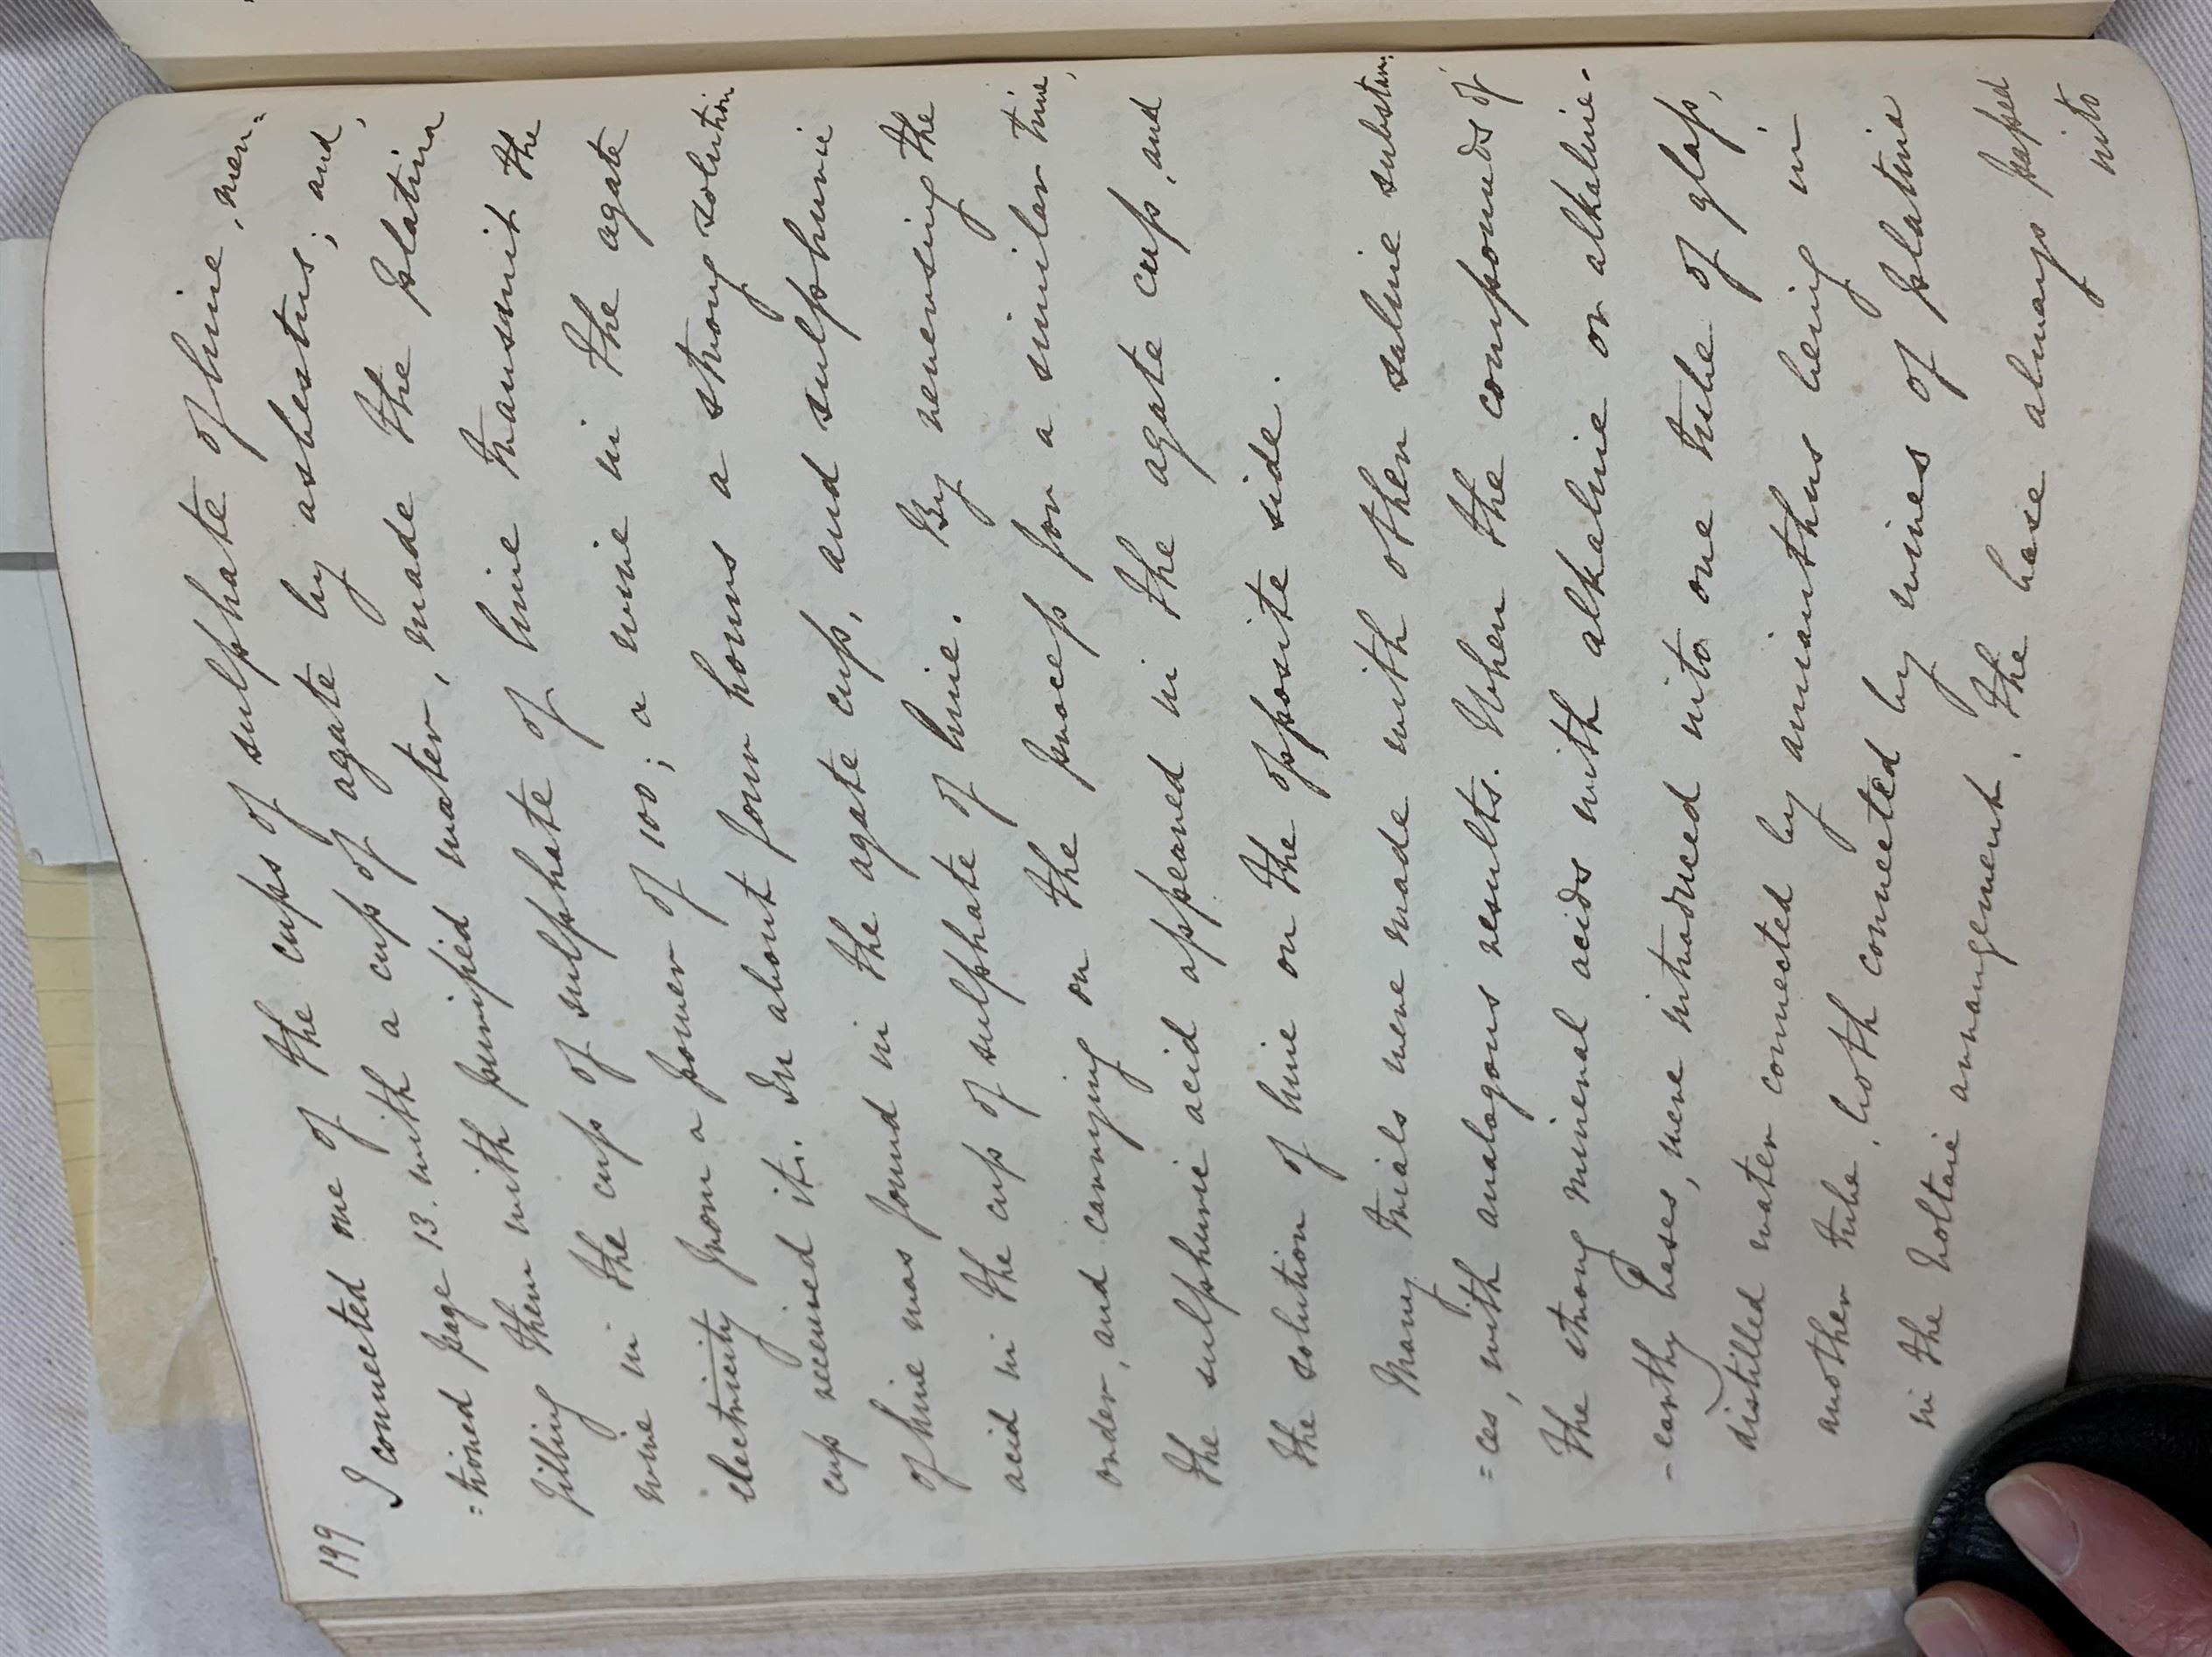 199
I connected one of the cups of sulphate of lime, men=
=tioned page 13. with a cup of agate by asbestus; and,
filling them with purified water, made the platina
wire in the cup of sulphate of lime transmit the
electricity from a power of 100; a wire in the agate
cup received it. In about four hours a strong solution
of lime was found in the agate cup, and sulphuric
acid in the cup of sulphate of lime. By reversing the
order, and carrying on the process for a similar time,
the sulphuric acid appeared in the agate cup, and
the solution of lime on the opposite side.
Many trials were made with other saline substan:
=ces, with analogous results. When the compounds of
the strong mineral acids with alkaline or alkaline-
-earthy bases, were introduced into one tube of glass,
distilled water connected by amianthus being in
another tube, both connected by wires of platina
in the Voltaic arrangement, the base always passed
into